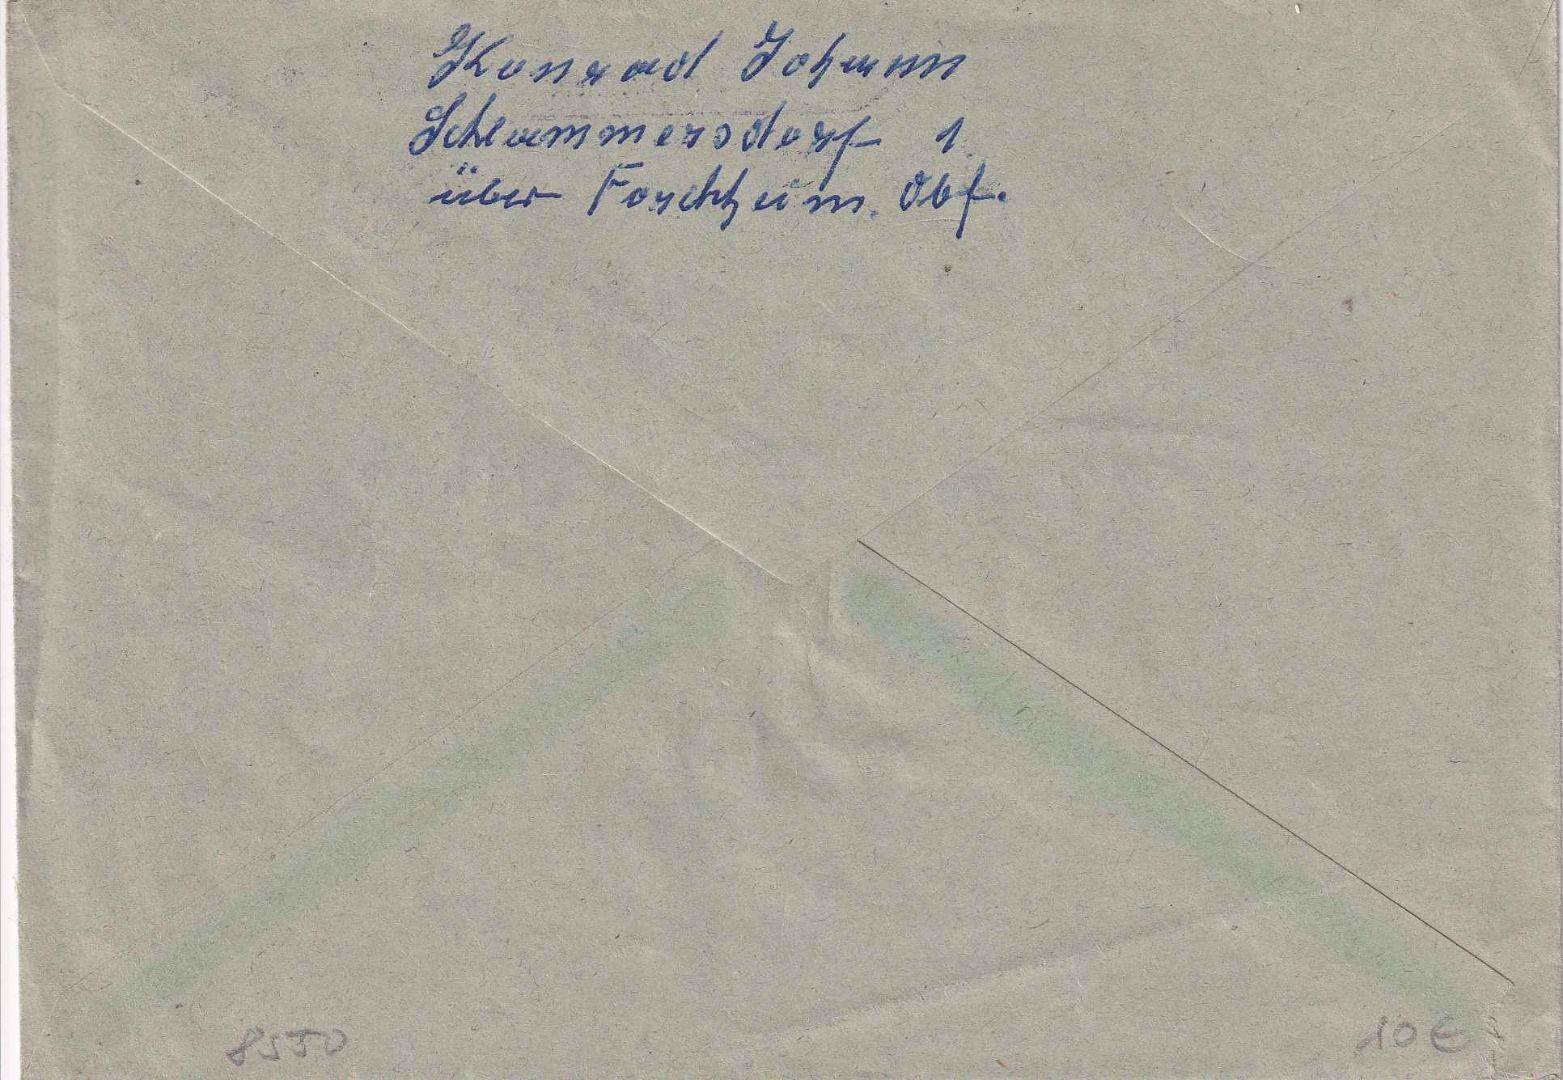 Konrad Johann
Schlammersdorf 1
über Forchheim. Obf.
8550
10 €